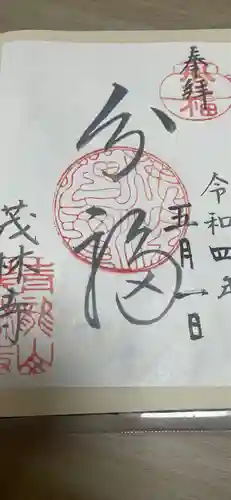 奉拝
令和四年
五月一日
分福
茂林寺